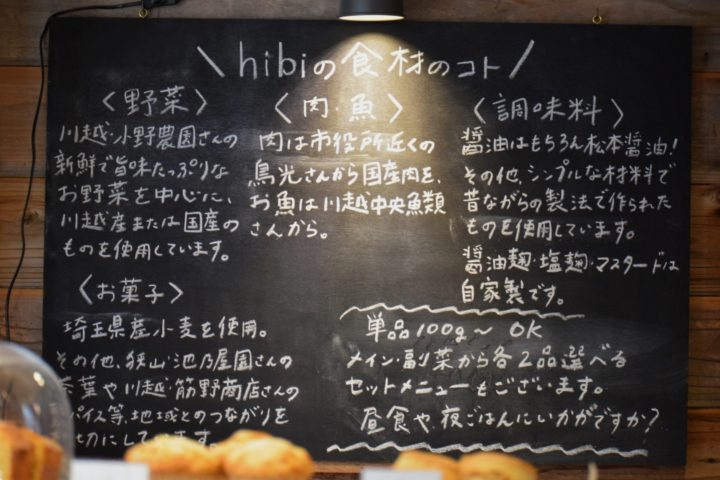 \ hibiの食材のコト /
〈野菜〉
川越・小野農園さんの
新鮮で旨味たっぷりな
お野菜を中心に、
川越産または国産の
ものを使用しています。
〈肉・魚〉
肉は市役所近くの
鳥光さんから国産肉を、
お魚は川越中央魚類
さんから。
〈調味料〉
醤油はもちろん松本醤油!
その他、シンプルな材料で
昔ながらの製法で作られた
ものを使用しています。
醤油麹・塩麹・マスタードは
自家製です。
〈お菓子〉
埼玉県産小麦を使用。
その他、狭山・池乃屋園さんの
茶葉や川越・筋野商店さんの
パイス等、地域とのつながりを
切にしています。
単品100g〜 OK
メイン・副菜から各2品選べる
セットメニューもございます。
昼食や、夜ごはんにいかがですか?